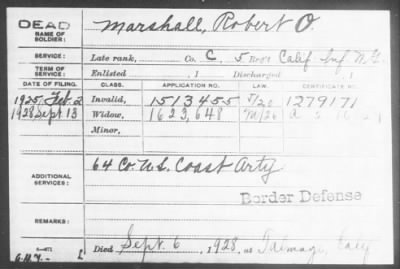 DEAD
NAME OF SOLDIER:
Marshall, Robert O
SERVICE:
Late rank, Co. C, 5 Reg't Calif Inf N.G.
TERM OF SERVICE:
Enlisted , 1 Discharged , 1
DATE OF FILING. CLASS. APPLICATION NO. LAW. CERTIFICATE NO.
1925, Feb. 2 Invalid, 1513455 1279171
1928 Sept 13 Widow, 1623,648
Minor,
ADDITIONAL SERVICES:
64 Co. U.S. Coast Arty
Border Defense
REMARKS:
Died Sept. 6, 1928, at Talmage, Calif